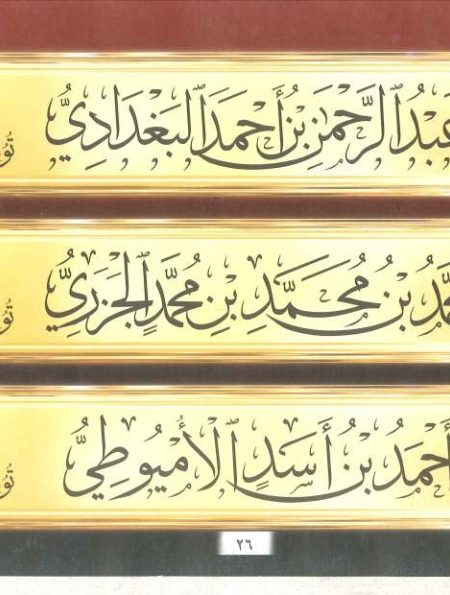 عَبْدُ الرَّحْمَنِ بْنُ أَحْمَدَ الْبَغْدَادِيُّ
بْنُ مُحَمَّدِ بْنِ مُحَمَّدٍ الْجَزَرِيُّ
أَحْمَدُ بْنُ أَسَدٍ الْأُمْيُوطِيُّ
٢٦